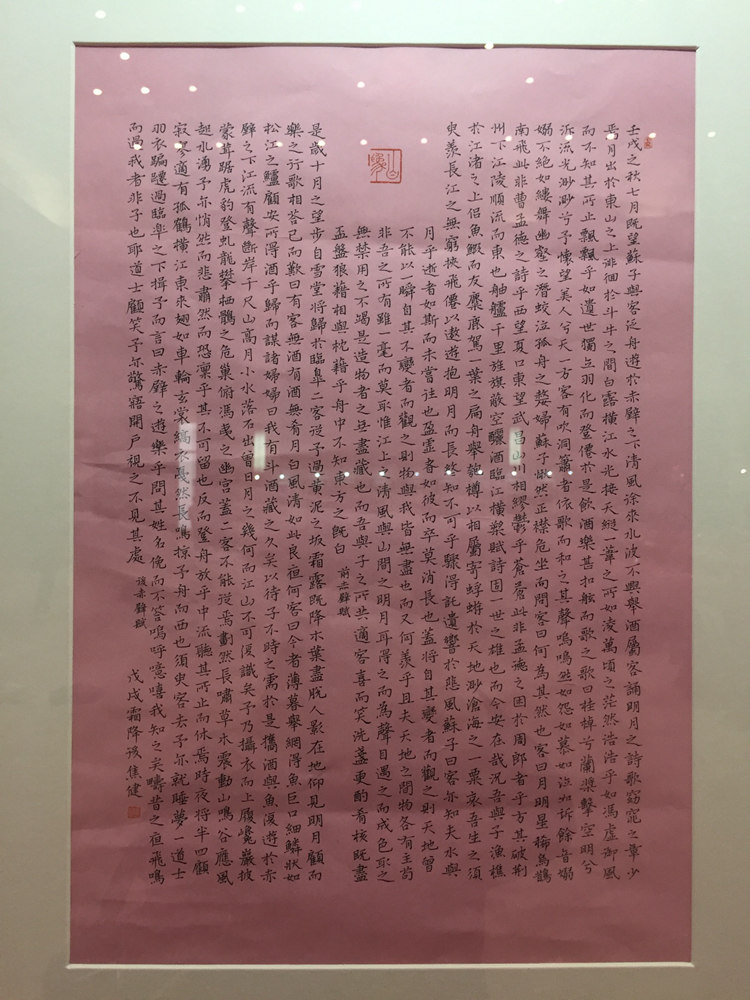 壬戌之秋七月既望蘇子與客泛舟遊於赤壁之下清風徐來水波不興舉酒屬客誦明月之詩歌窈窕之章少
焉月出於東山之上徘徊於斗牛之間白露橫江水光接天縱一葦之所如凌萬頃之茫然浩浩乎如馮虛御風
而不知其所止飄飄乎如遺世獨立羽化而登僊於是飲酒樂甚扣舷而歌之歌曰桂棹兮蘭槳擊空明兮
泝流光渺渺兮予懷望美人兮天一方客有吹洞簫者依歌而和之其聲嗚嗚然如怨如慕如泣如訴餘音嫋
嫋不絕如縷舞幽壑之潛蛟泣孤舟之嫠婦蘇子愀然正襟危坐而問客曰何為其然也客曰月明星稀烏鵲
南飛此非曹孟德之詩乎西望夏口東望武昌山川相繆鬱乎蒼蒼此非孟德之困於周郎者乎方其破荊
州下江陵順流而東也舳艫千里旌旗蔽空釃酒臨江橫槊賦詩固一世之雄也而今安在哉況吾與子漁樵
於江渚之上侶魚鰕而友麋鹿駕一葉之扁舟舉匏樽以相屬寄蜉蝣於天地渺滄海之一粟哀吾生之須
臾羨長江之無窮挾飛僊以遨遊抱明月而長終知不可乎驟得託遺響於悲風蘇子曰客亦知夫水與
月乎逝者如斯而未嘗往也盈虛者如彼而卒莫消長也蓋將自其變者而觀之則天地曾
不能以一瞬自其不變者而觀之則物與我皆無盡也而又何羨乎且夫天地之間物各有主苟
非吾之所有雖一毫而莫取惟江上之清風與山間之明月耳得之而為聲目遇之而成色取之
無禁用之不竭是造物者之無盡藏也而吾與子之所共適客喜而笑洗盞更酌肴核既盡
盃盤狼藉相與枕藉乎舟中不知東方之既白 前赤壁賦
是歲十月之望步自雪堂將歸於臨皐二客從予過黃泥之坂霜露既降木葉盡脫人影在地仰見明月顧而
樂之行歌相荅已而歎曰有客無酒有酒無肴月白風清如此良夜何客曰今者薄暮舉網得魚巨口細鱗狀如
松江之鱸顧安所得酒乎歸而謀諸婦婦曰我有斗酒藏之久矣以待子不時之需於是攜酒與魚復遊於赤
壁之下江流有聲斷岸千尺山高月小水落石出曾日月之幾何而江山不可復識矣予乃攝衣而上履巉巖披
蒙茸踞虎豹登虬龍攀栖鶻之危巢俯馮夷之幽宮蓋二客不能從焉劃然長嘯草木震動山鳴谷應風
起水湧予亦悄然而悲肅然而恐凜乎其不可留也反而登舟放乎中流聽其所止而休焉時夜將半四顧
寂寥適有孤鶴橫江東來翅如車輪玄裳縞衣戛然長鳴掠予舟而西也須臾客去予亦就睡夢一道士
羽衣蹁躚過臨皐之下揖予而言曰赤壁之遊樂乎問其姓名俛而不答嗚呼噫嘻我知之矣疇昔之夜飛鳴
而過我者非子也耶道士顧笑予亦驚寤開戶視之不見其處 後赤壁賦 戊戌霜降後焦健